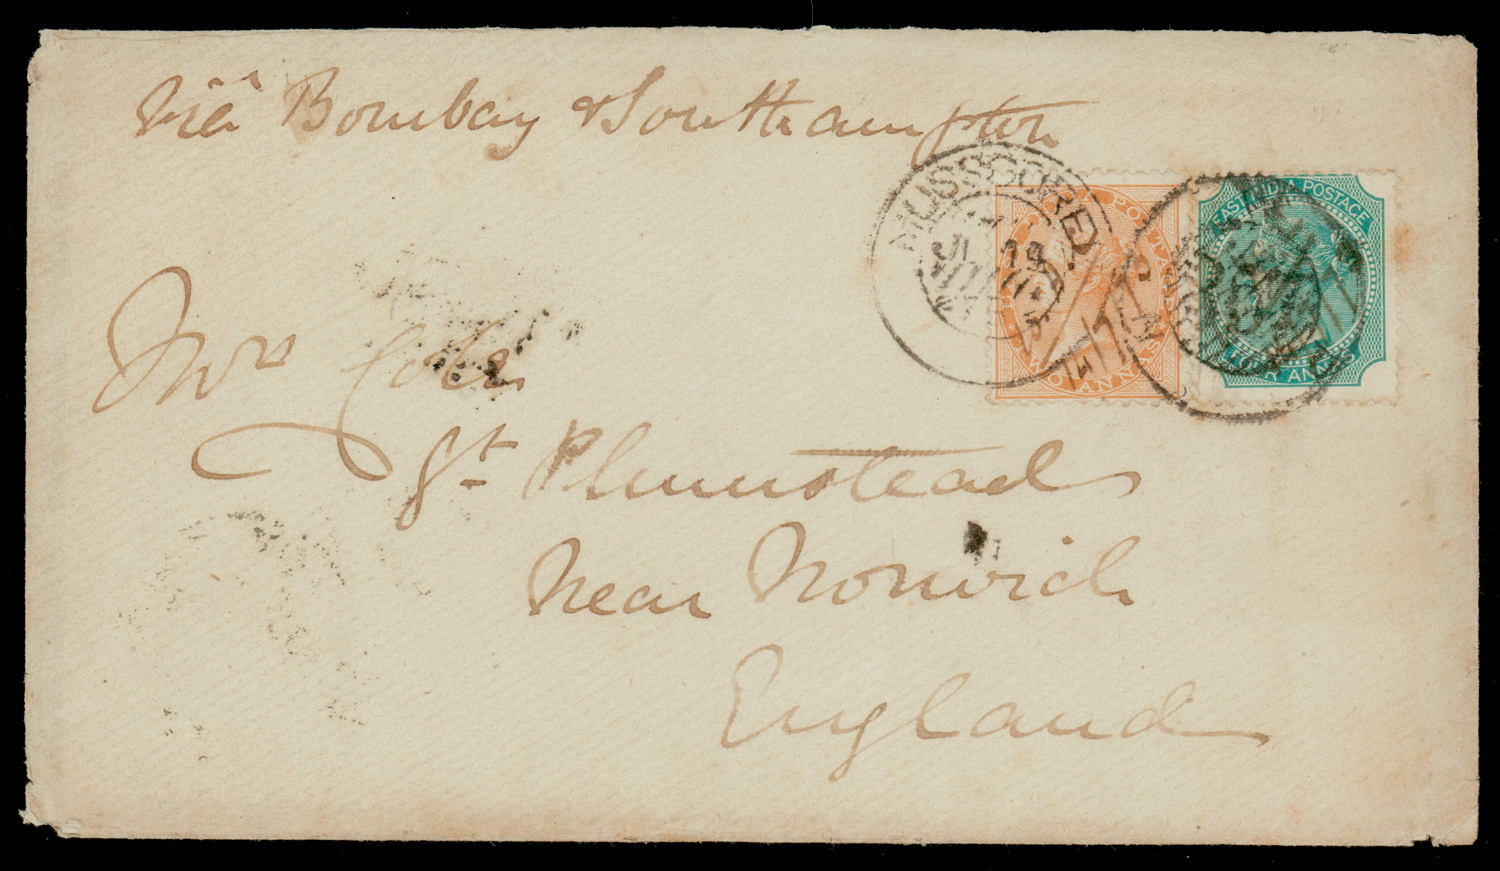 Viâ Bombay & Southampton
MUSSOORIE
19
EAST INDIA POSTAGE
FOUR ANNAS
POSTAGE
TWO ANNAS
Mrs Cole
Gt. Plumstead
Near Norwich
England